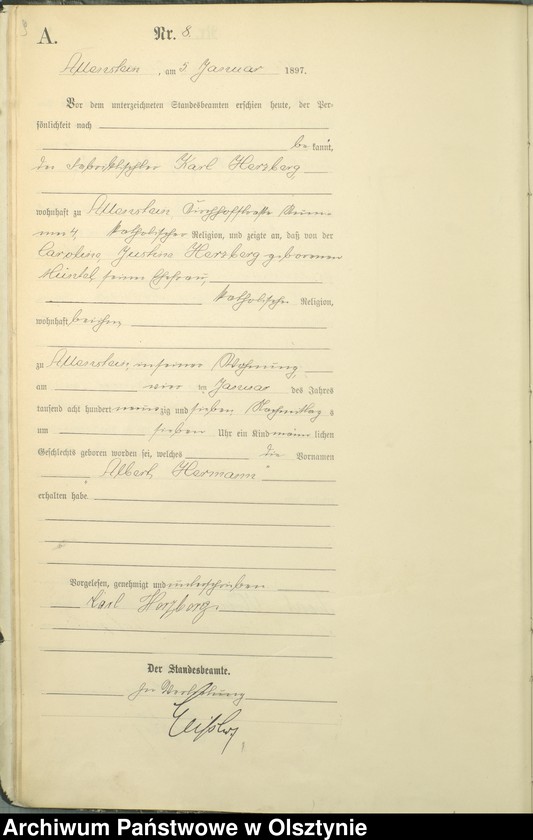 A.
Nr. 8.
Allenstein, am 5. Januar 1897.
Vor dem unterzeichneten Standesbeamten erschien heute, der Per-
sönlichkeit nach
be kannt,
der Karl Herzberg
wohnhaft zu Allenstein, Kirchhofstraße Num-
mer 4, katholischer Religion, und zeigte an, daß von der
Caroline, Justine Herzberg geborenen
seiner Ehefrau,
katholischer Religion,
wohnhaft bei ihm
zu Allenstein, in seiner Wohnung
am vier ten Januar des Jahres
tausend acht hundert neunzig und sieben Nachmittag s
um sieben Uhr ein Kind männ lichen
Geschlechts geboren worden sei, welches die Vornamen
"Albert, Hermann"
erhalten habe.
Vorgelesen, genehmigt und unterschrieben
Karl Herzberg.
Der Standesbeamte.
In Vertretung
Archiwum Państwowe w Olsztynie